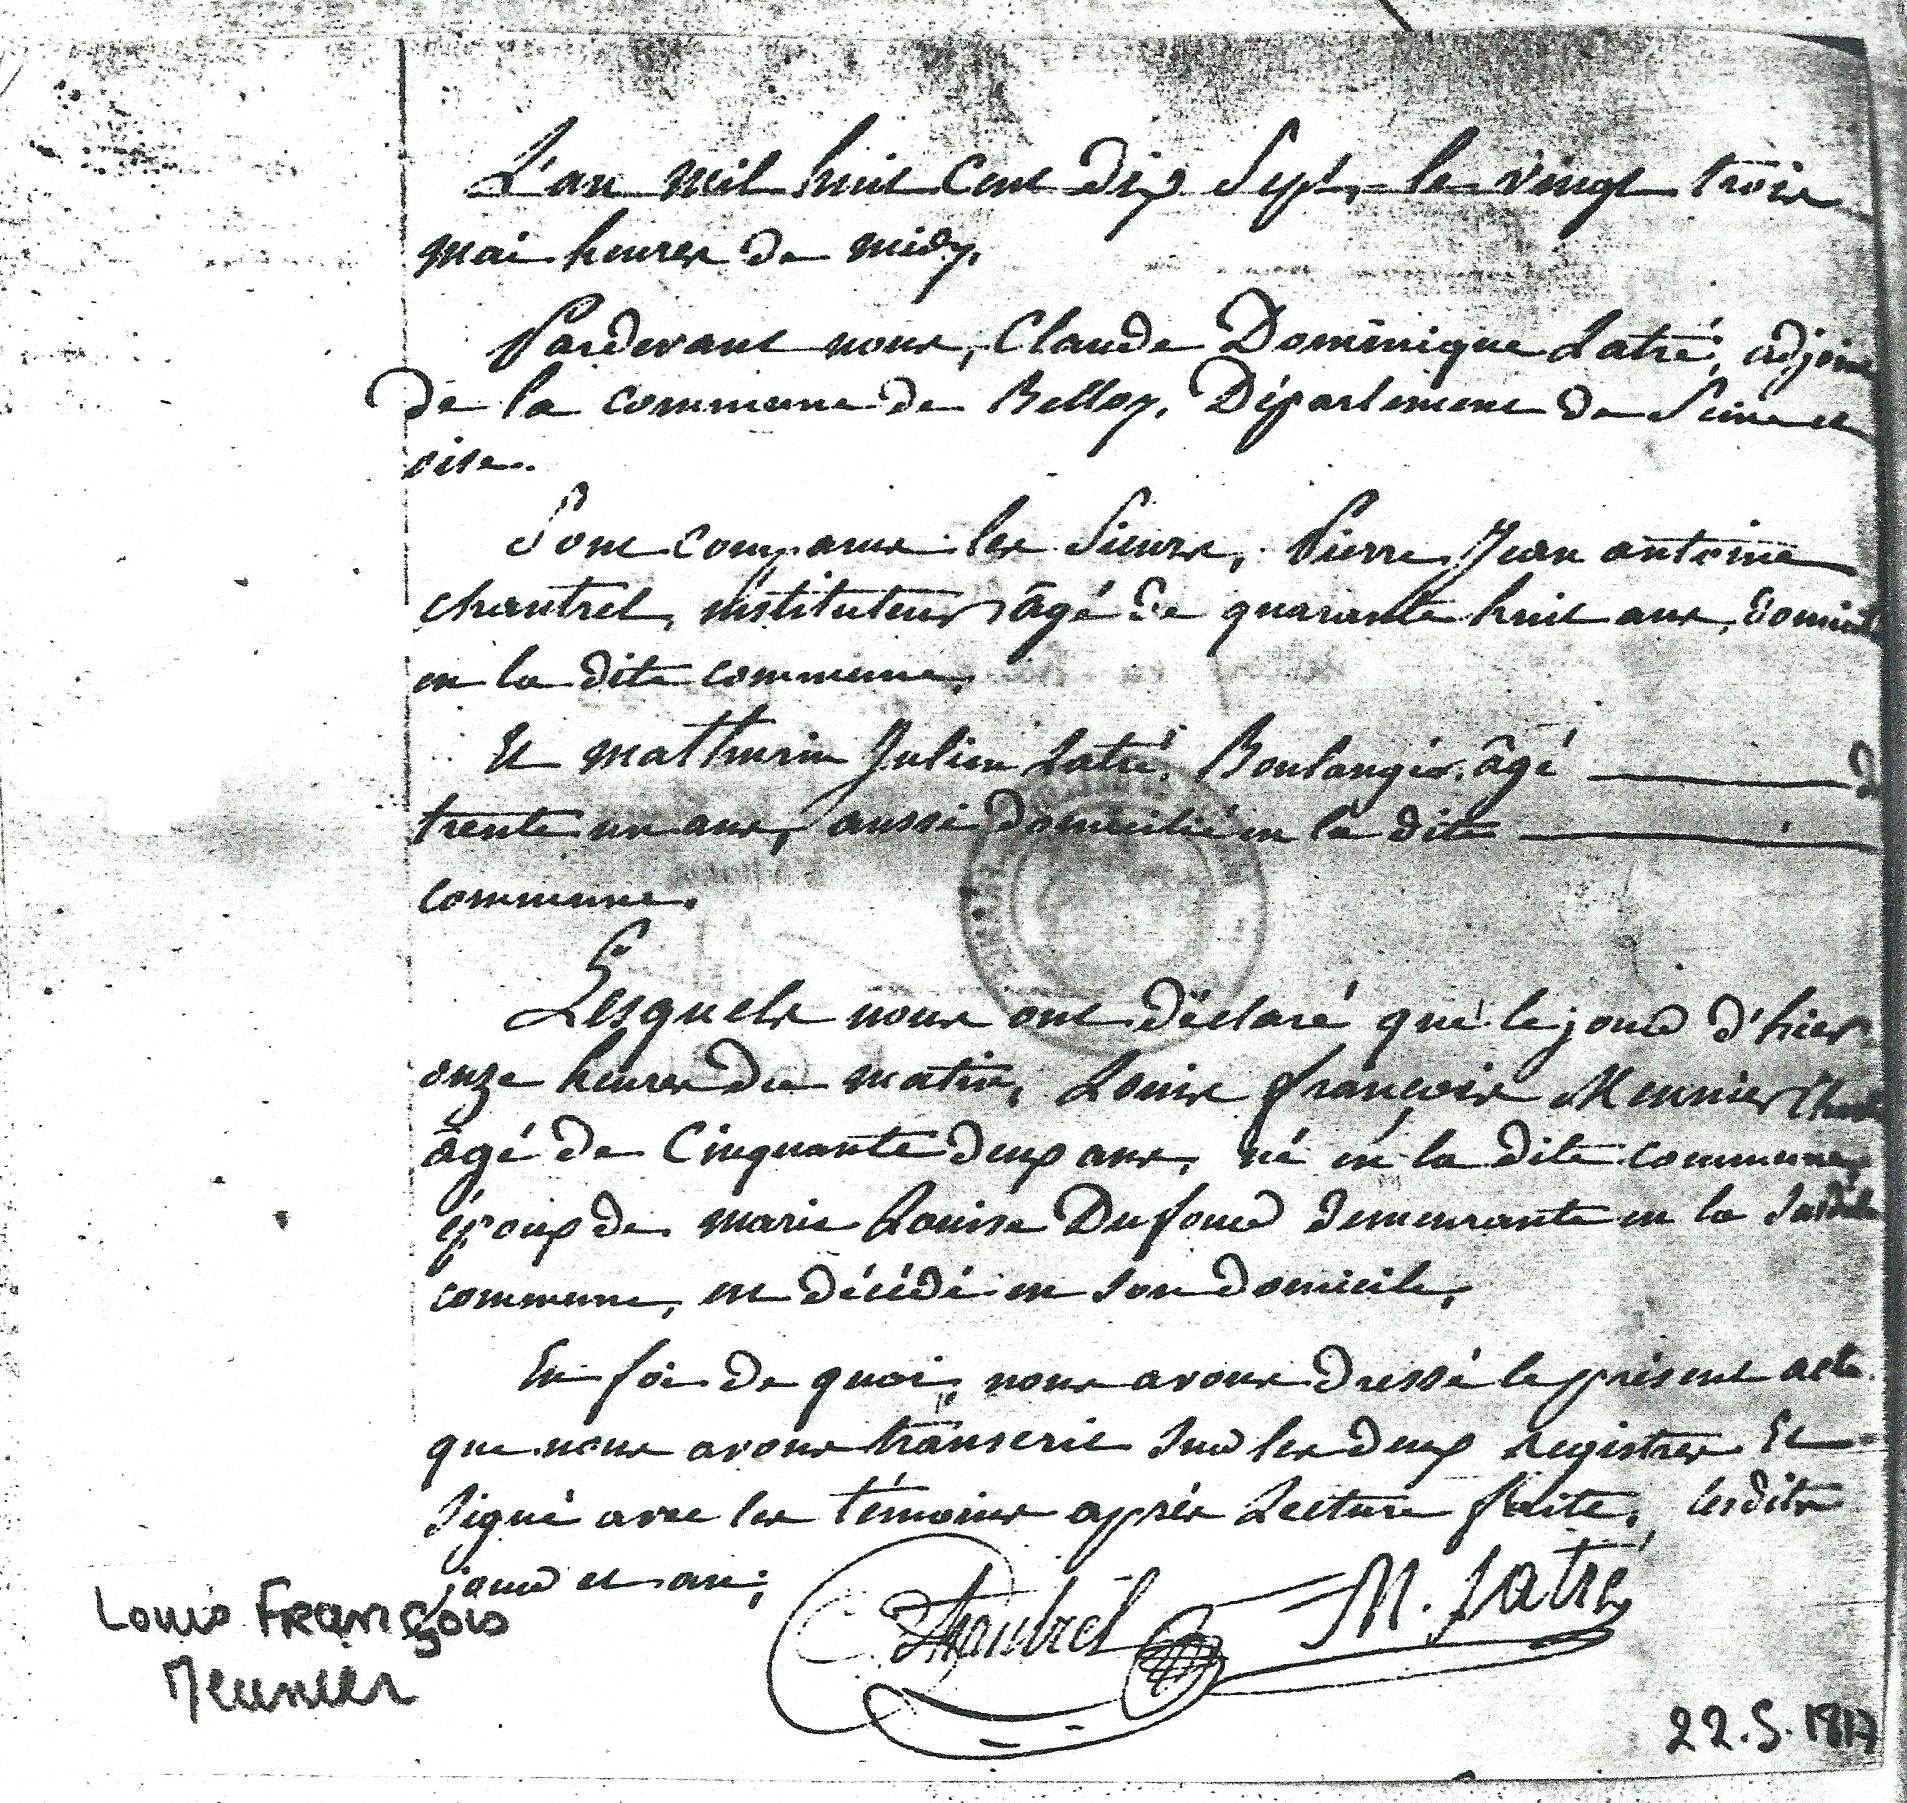 L'an mil huit Cent Dix Sept, le vingt trois
mai heures de midy.
Pardevant nous, Claude Dominique Latré, adjoint
de la commune de Belloy, Département de Seine et
oise.
Sont comparus les Sieurs, Pierre Jean antoine
chantrel, instituteur âgé de quarante huit ans, domicil
en la dite commune.
Et mathurin Julien Latré, Boulanger, âgé de
trente un ans, aussi domicilié en la dite
commune.
Lesquels nous ont déclaré que le jour d'hier
onze heures du matin, Louis françois Meunier
âgé de Cinquante deux ans, né en la dite commune,
époux de marie Louise Dufour demeurante en la Susdite
commune, est décédé en son domicile,
En foi de quoi, nous avons dressé le présent acte
que nous avons transcrit sur les deux registres Et
signé avec les témoins après Lecture faite, lesdits
jour et an;
Chantrel M. Latré
Louis François
Meunier
22.5.1817